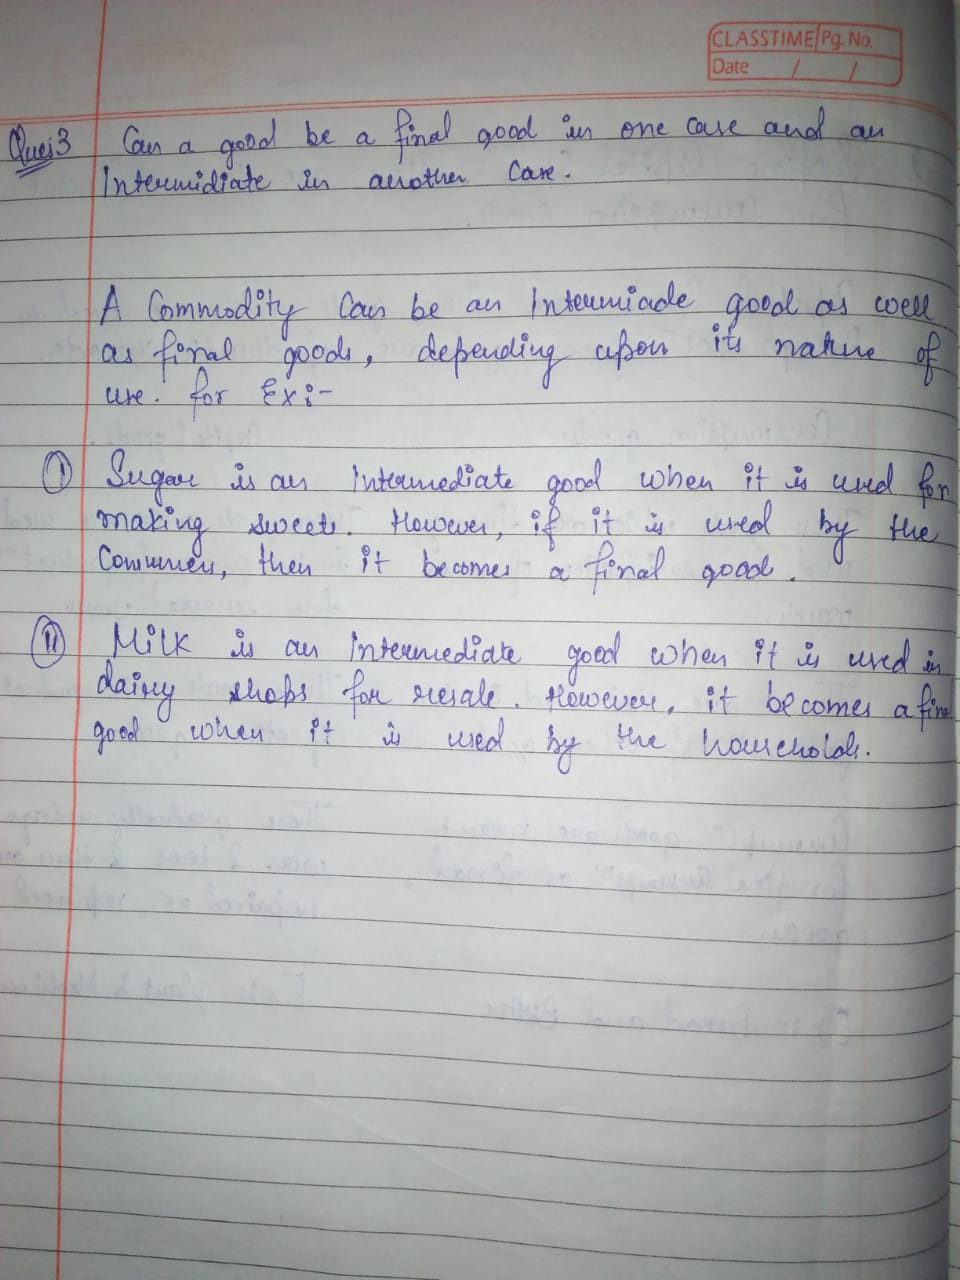 CLASSTIME Pg. No.
Date / /
Ques3 Can a good be a final good in one case and an
Intermidiate in another Case.
A Commodity Can be an Intermiade good as well
as final goods, depending upon its nature of
use. for Ex:-
(I) Sugar is an Intermediate good when it is used for
making sweets. However, if it is used by the
Consumer, then it becomes a final good.
(II) Milk is an Intermediate good when it is used in
dairy shops for resale. However, it becomes a final
good when it is used by the households.